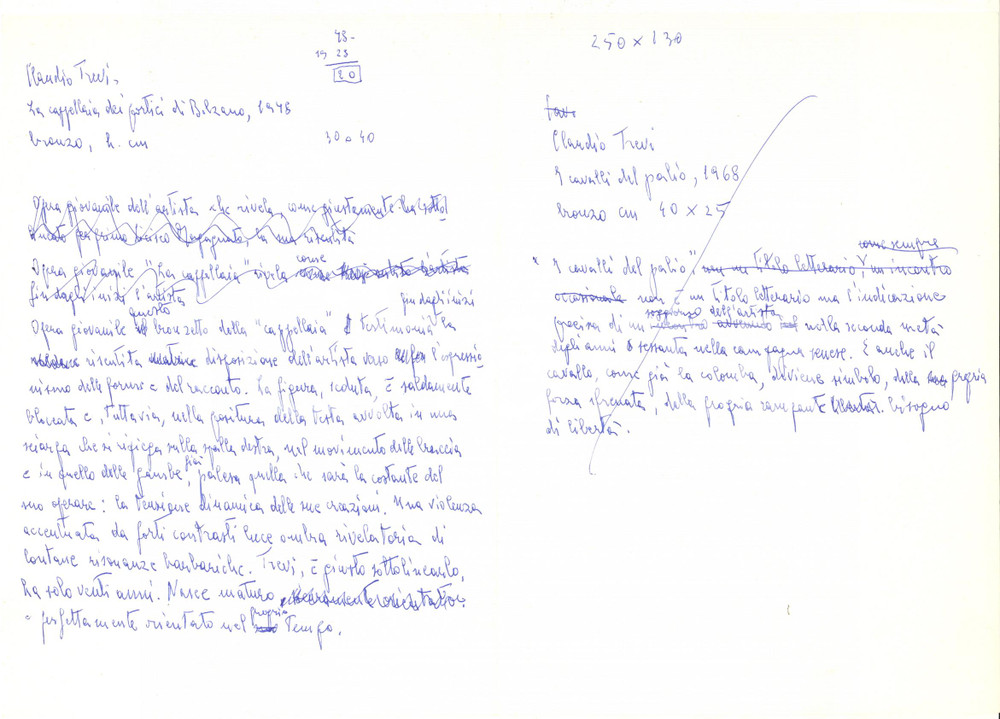 48-
1928
20
Claudio Trevi.
La cappellaia dei portici di Bolzano, 1948
bronzo, h. cm 30 o 40
Opera giovanile dell'artista che rivela, come giustamente ha sotto
la sua risentita
Opera giovanile "La cappellaia" rivela come
fin dagli inizi l'artista
questo fin dagli inizi
Opera giovanile il bronzetto della "cappellaia" testimonia la
risentita disposizione dell'artista verso l'espressio
nismo delle forme e del racconto. La figura, seduta, è saldamente
bloccata e, tuttavia, nella positura della testa avvolta in una
sciarpa che si ripiega sulla spalla destra, nel movimento delle braccia
e in quello delle gambe, già palesa quella che sarà la costante del
suo operare: la tensione dinamica delle sue creazioni. Una violenza
accentuata da forti contrasti luce ombra rivelatoria di
lontane risonanze barbariche. Trevi, è giusto sottolinearlo,
ha solo venti anni. Nasce maturo
e perfettamente orientato nel proprio Tempo.
250 x 130
Claudio Trevi
I cavalli del palio, 1968
bronzo cm 40 x 25
come sempre
"I cavalli del palio", non un titolo letterario, un incontro
occasionale non è un titolo letterario ma l'indicazione
soggiorno dell'artista
precisa di un nella seconda metà
degli anni sessanta nella campagna senese. E anche il
cavallo, come già la colomba, diviene simbolo, della propria
forza sfrenata, della propria rampante bisogno
di libertà.